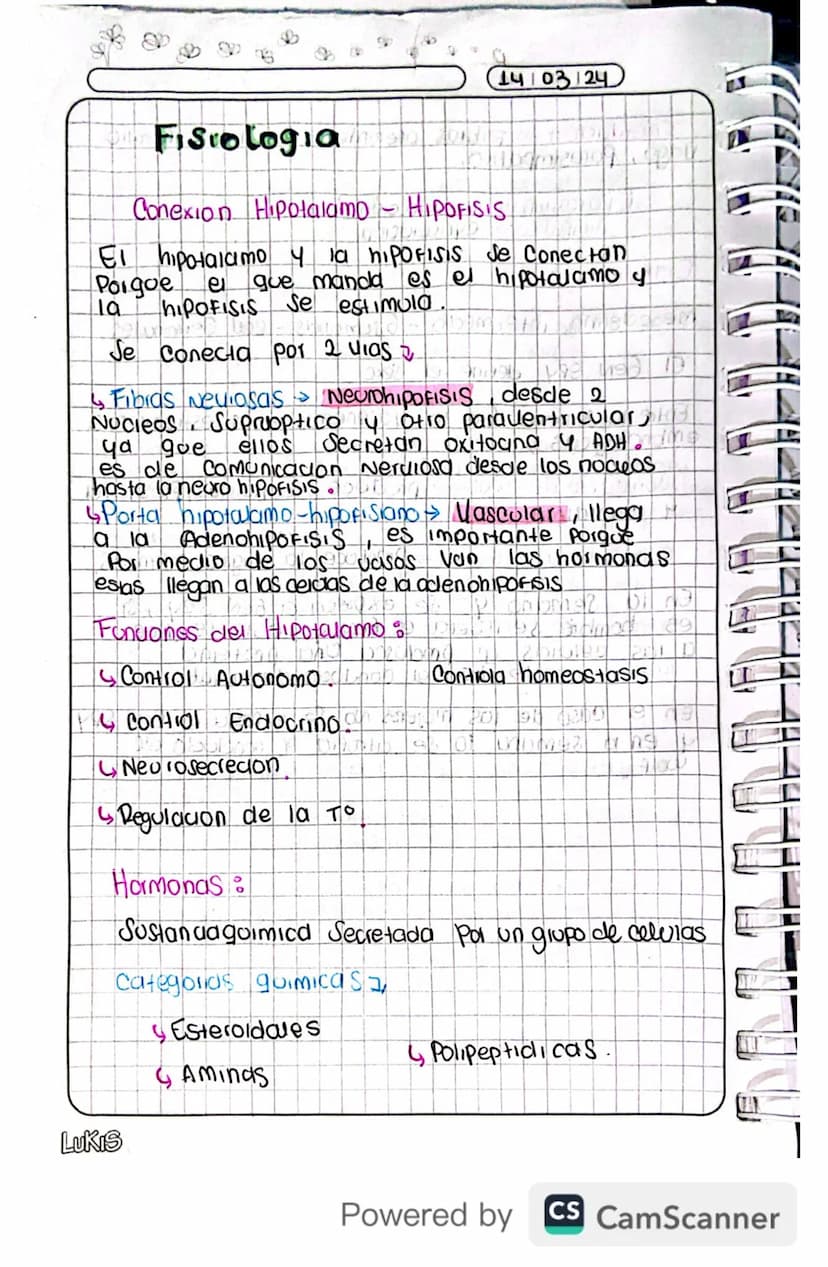 14 | 03 | 24
Fisiologia
Conexion Hipotalamo - Hipofisis
El hipotalamo y la hipofisis se conectan
Porque el que manda es el hipotalamo y
la hipofisis se estimula.
Se conecta por 2 vias
↳ Fibras nerviosas → Neurohipofisis, desde 2
Nucleos, Supraoptico y otro paraventricular,
ya que ellos secretan oxitocina y ADH.
es de comunicacion nerviosa desde los nucleos
hasta la neuro hipofisis.
↳ Porta hipotalamo-hipofisiano → Vascular, llega
a la Adenohipofisis, es importante porque
Por medio de los vasos van las hormonas
estas llegan a las celulas de la adenohipofisis
Funciones del Hipotalamo:
↳ Control Autonomo. Controla homeostasis
↳ Control Endocrino.
↳ Neurosecrecion.
↳ Regulacion de la T°.
Hormonas:
Sustancia quimica Secretada Por un grupo de celulas
Categorias quimicas
↳ Esteroidales
↳ Polipeptidicas.
↳ Aminas
LUKIS
Powered by CS CamScanner